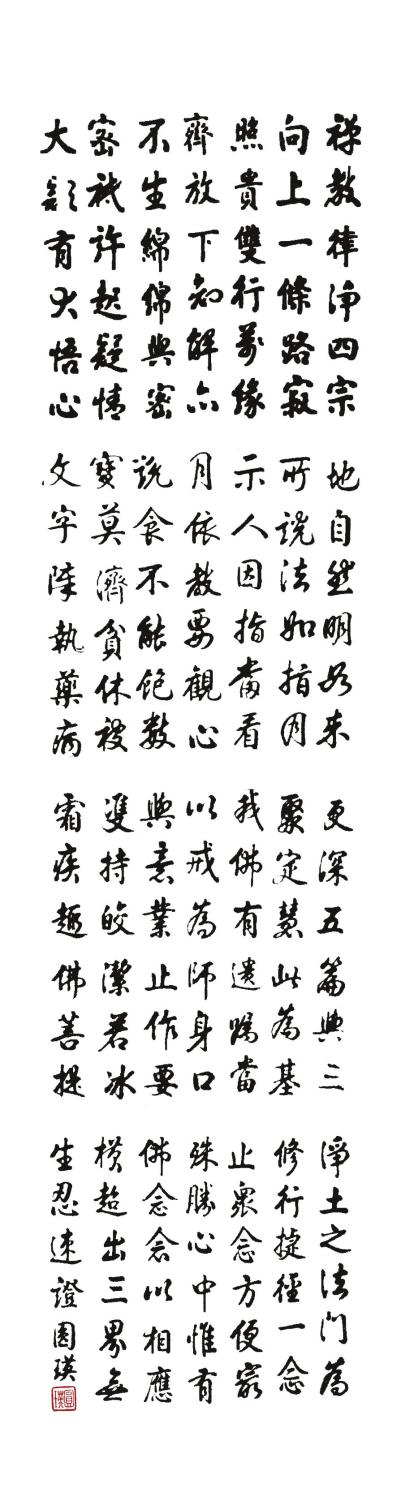 禪教律淨四宗
向上一條路寂
照貴雙行萬緣
齊放下知解亦
不生綿綿與密
密祇許起疑情
大疑有大悟心
地自然明如来
所說法如指月
示人因指當看
月依教要觀心
說食不能飽數
寶莫濟貧休被
文字障執藥病
更深五篇與三
聚定慧此為基
我佛有遺囑當
以戒為師身口
與意業止作要
雙持皎潔若冰
霜疾趣佛菩提
淨土之法門為
修行捷徑一念
止眾念方便最
殊勝心中惟有
佛念念以相應
橫超出三界無
生忍速證圓瑛
圓瑛